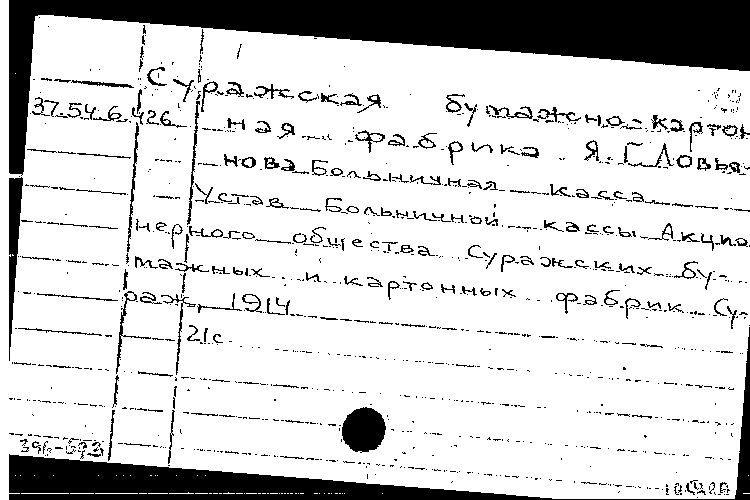 Суражская бумажно-картон
37.54.6.426 ная фабрика Я.Г. Ловья-
нова Больничная касса
Устав Больничной кассы Акцио
нерного общества Суражских бу-
мажных и картонных фабрик. Су-
раж, 1914
21с